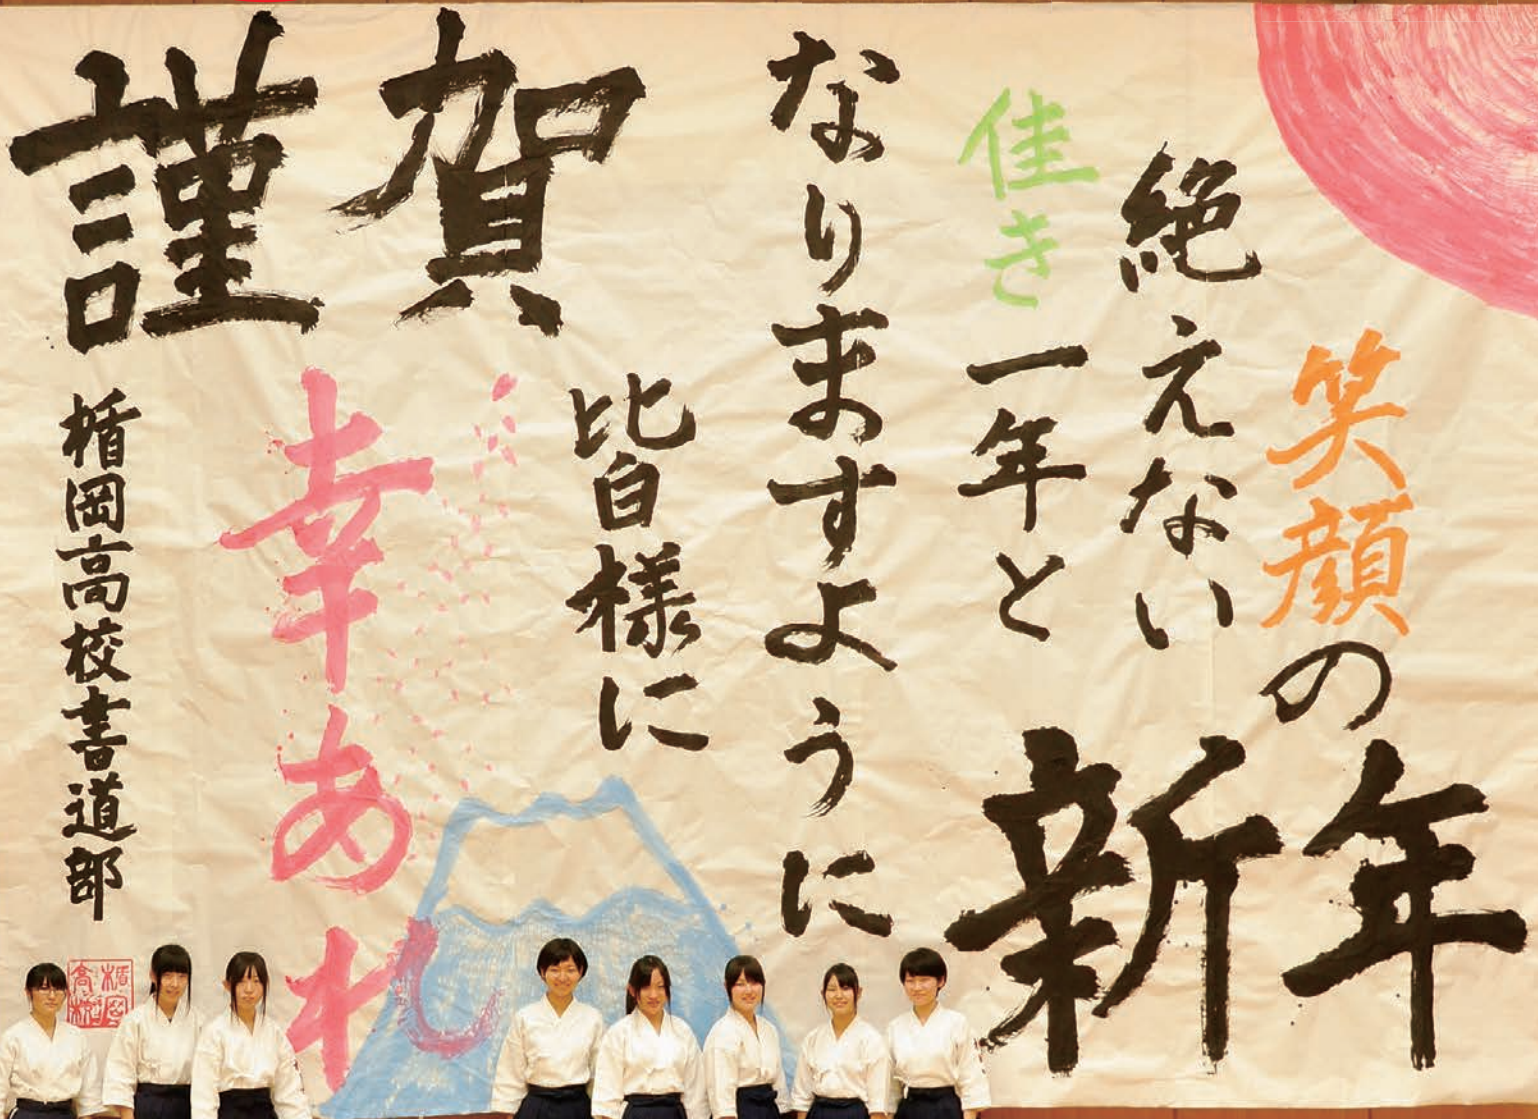 謹賀
新年
笑顔の
絶えない
佳き一年と
なりますように
皆様に
幸あれ
楯岡高校書道部